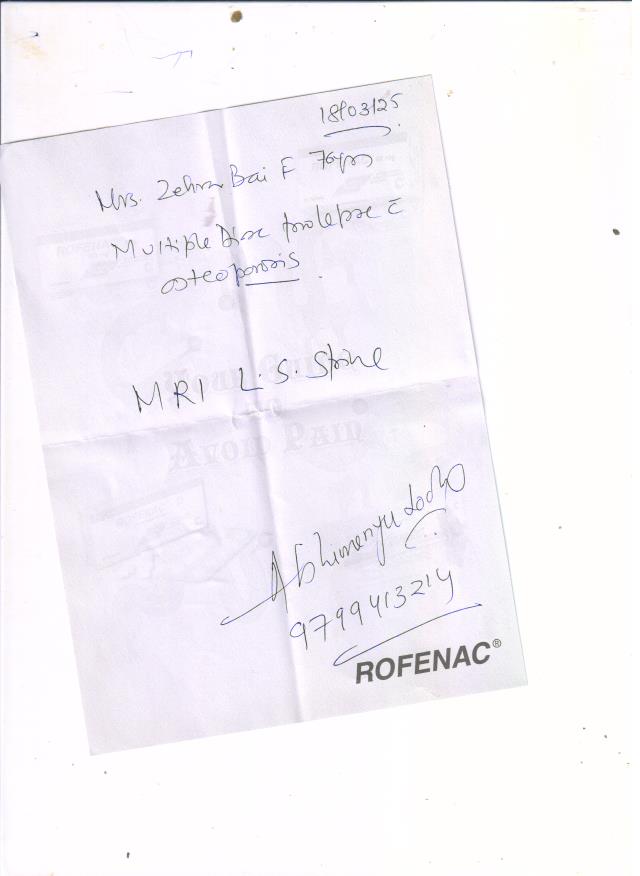 18/03/25
Mrs. Zehra Bai F 76yrs
Multiple Disc prolapse c̄
osteoporosis.
MRI L.S. Spine
Abhimanyu
9799413214
ROFENAC®
ROFENAC
AVOID PAIN